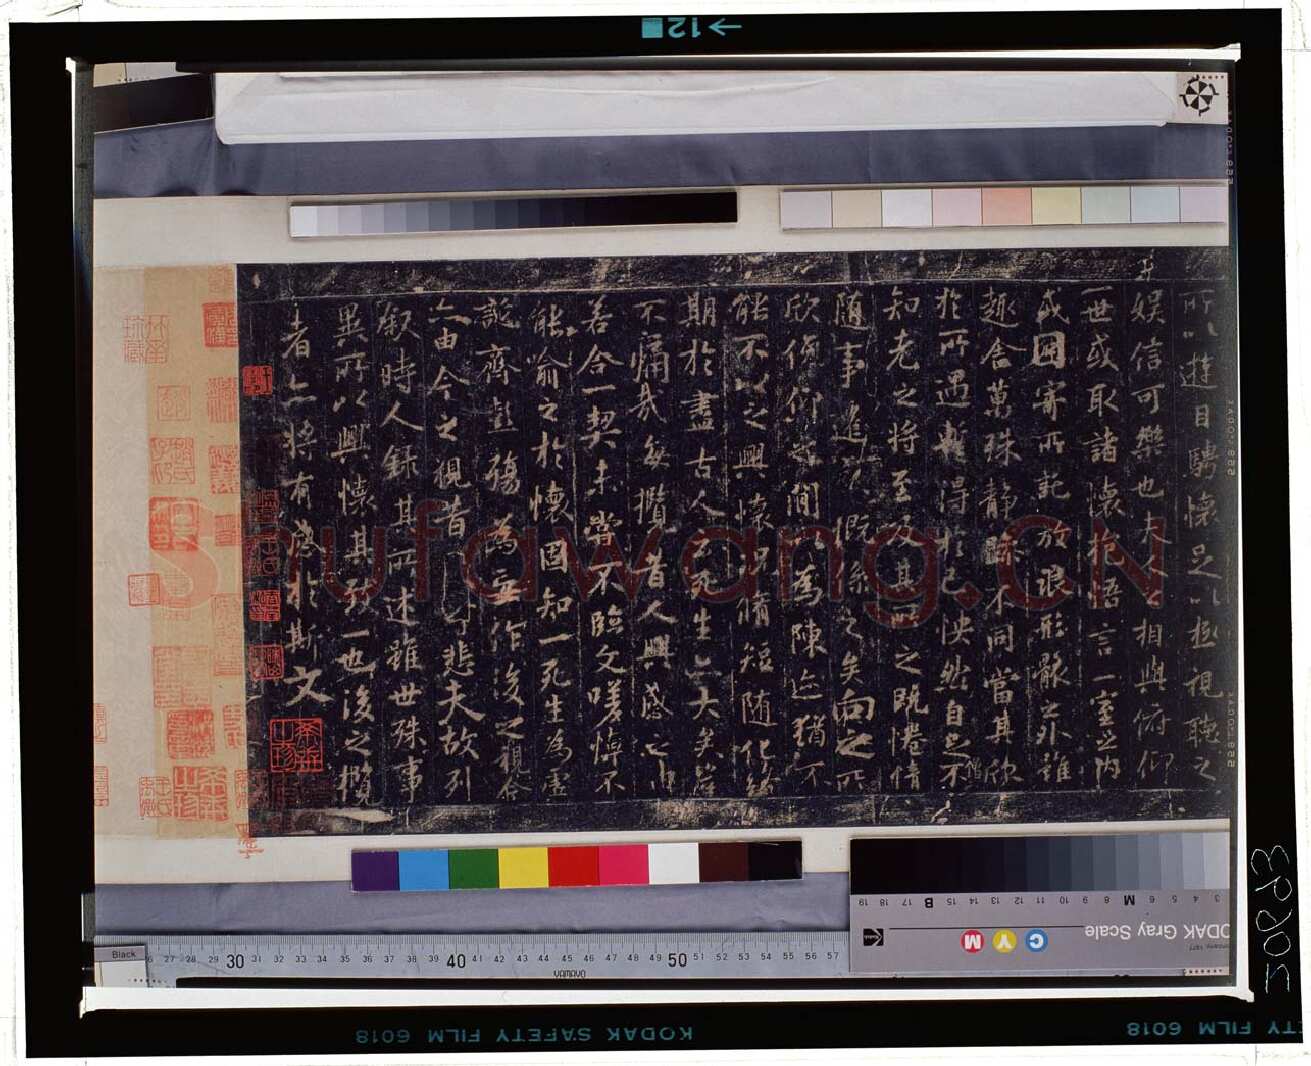 所以遊目騁懷足以極視聽之
娛信可樂也夫人之相與俯仰
一世或取諸懷抱悟言一室之內
或因寄所託放浪形骸之外雖
趣舍萬殊靜躁不同當其欣
於所遇暫得於己怏然自足不
知老之將至及其所之既惓情
隨事遷感慨係之矣向之所
欣俛仰之間以為陳迹猶不
能不以之興懷況脩短隨化終
期於盡古人云死生亦大矣豈
不痛哉每攬昔人興感之由
若合一契未嘗不臨文嗟悼不
能喻之於懷固知一死生為虛
誕齊彭殤為妄作後之視今
亦由今之視昔悲夫故列
敘時人錄其所述雖世殊事
異所以興懷其致一也後之攬
者亦將有感於斯文
Shufawang.CN
12
KODAK SAFETY FILM 6018
TY FILM 6018
ODAK Gray Scale
C Y M
19 18 17 B 15 14 13 12 11 10 9 8 M 6 5 4 3
Black
27 28 29 30 31 32 33 34 35 36 37 38 39 40 41 42 43 44 45 46 47 48 49 50 51 52 53 54 55 56 57